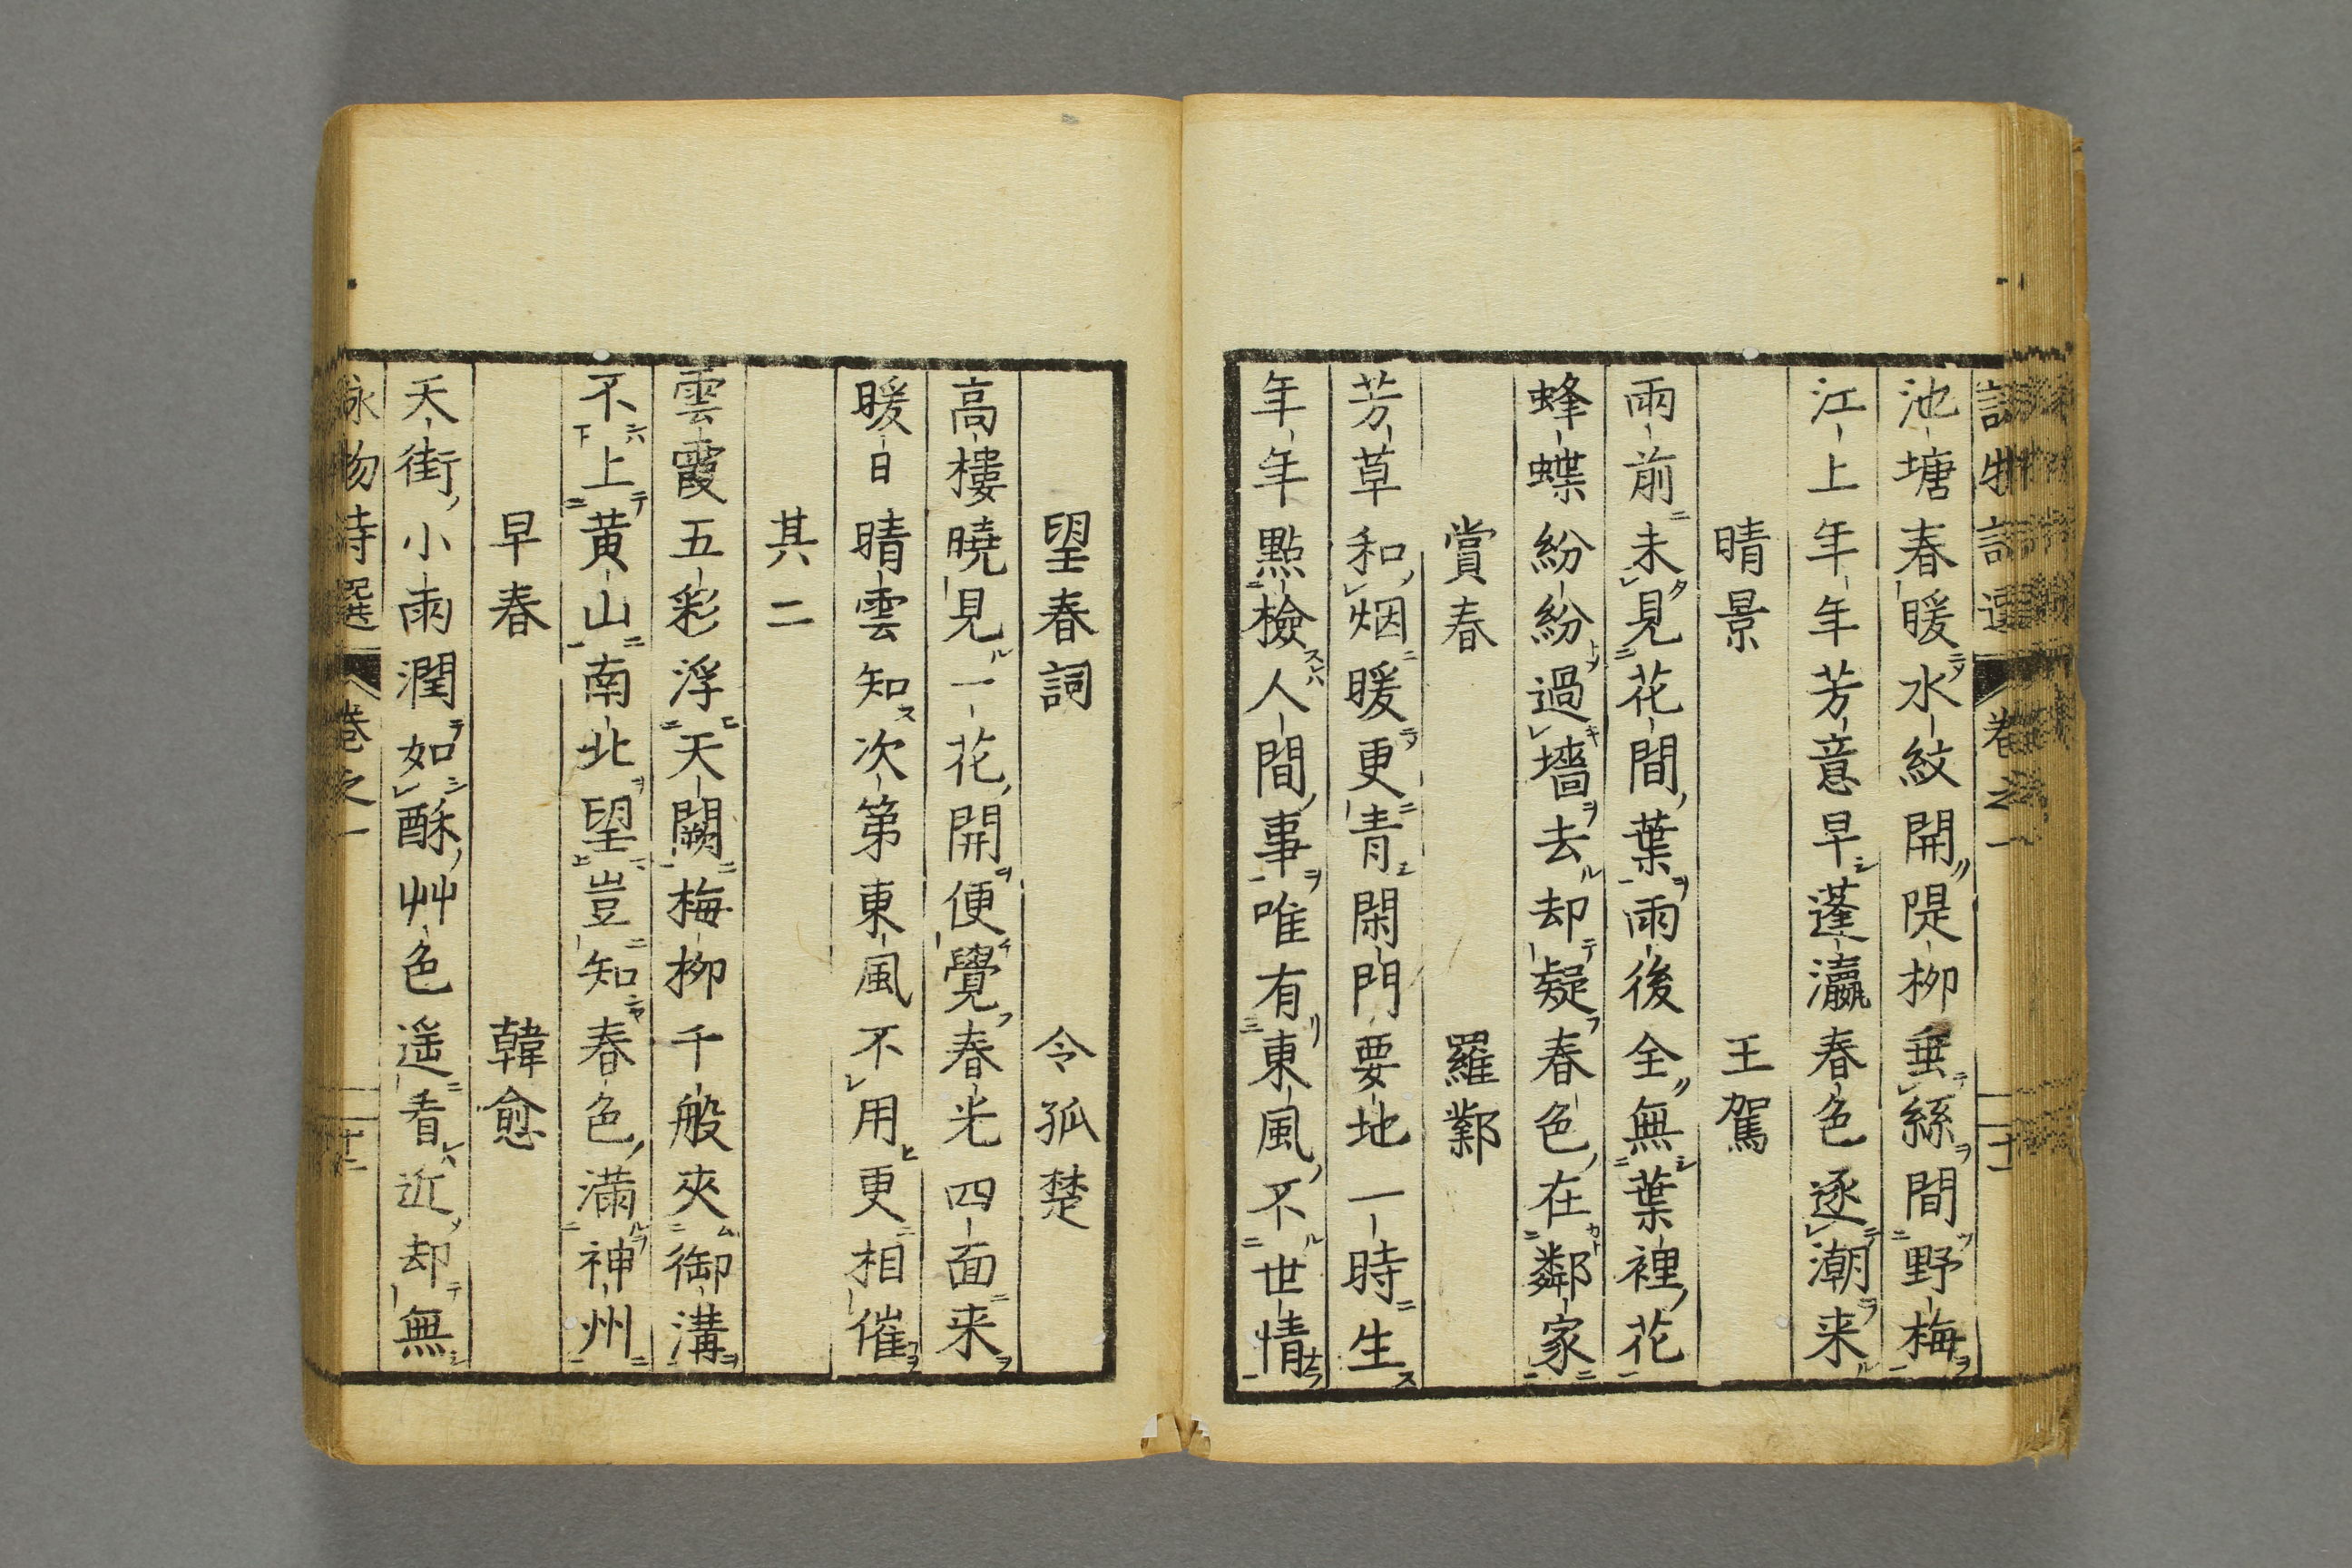 池塘春暖水紋開隄柳垂絲間野梅
江上年年芳意早蓬瀛春色逐潮来
晴景 王駕
雨前未見花間葉雨後全無葉裡花
蜂蝶紛紛過墻去却疑春色在鄰家
賞春 羅鄴
芳草和烟暖更青閑門要地一時生
年年點檢人間事唯有東風不世情
望春詞 令孤楚
高樓曉見一花開便覺春光四面来
暖日晴雲知次第東風不用更相催
其二
雲霞五彩浮天闕梅柳千般夾御溝
不上黄山南北望豈知春色滿神州
早春 韓愈
天街小雨潤如酥艸色遥看近却無
詠物詩選 卷之一